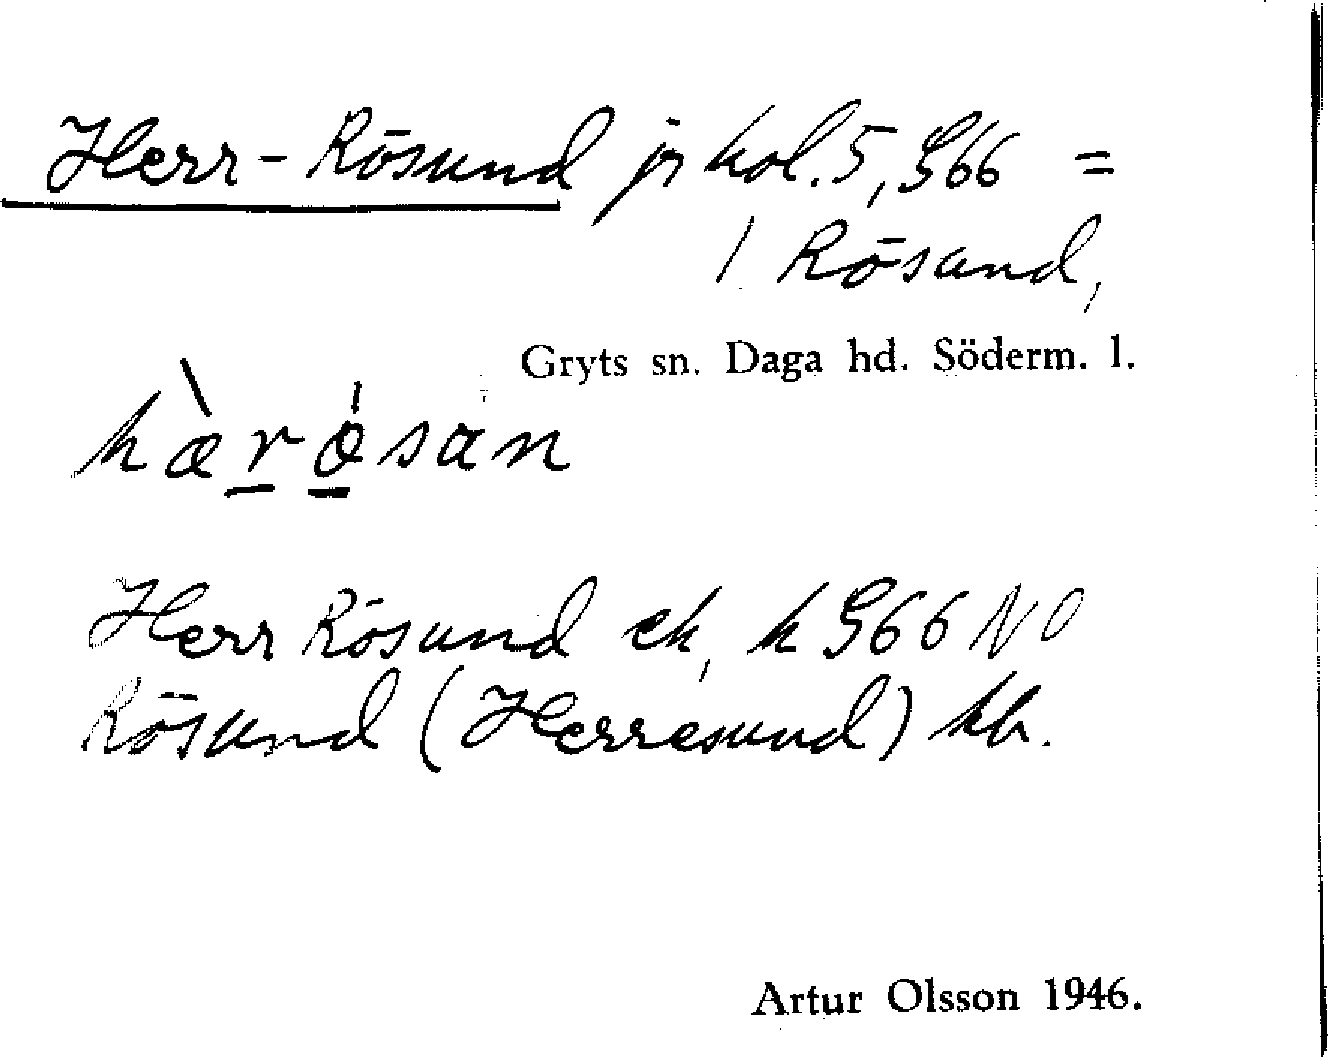 Herr-Rösund jr kol. 5, 966 =
1 Rösund,
Gryts sn. Daga hd. Söderm. l.
hæ̀rø̍san
Herr Rösund ek, k 966 NO
Rösund (Herresund) kb.
Artur Olsson 1946.